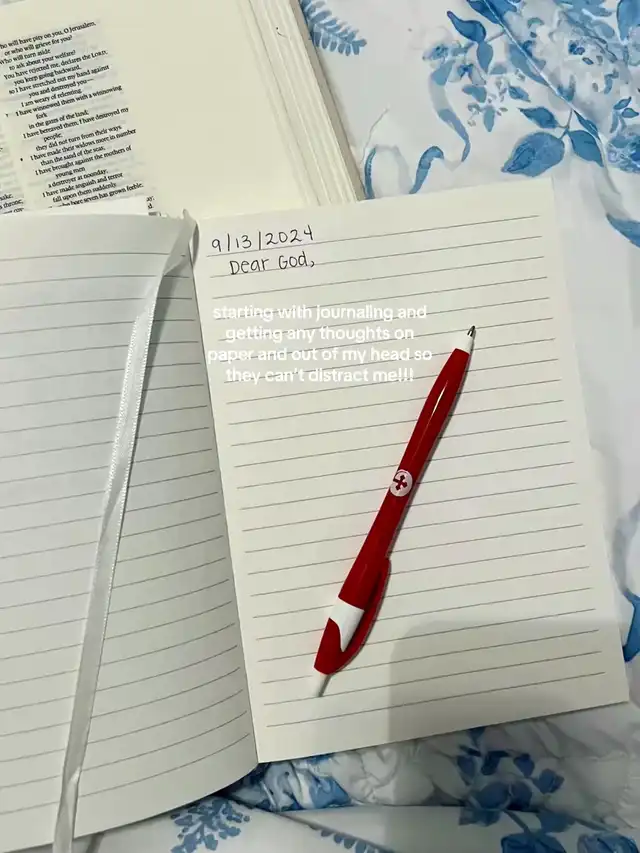 who will have pity on you, O Jerusalem,
or who will grieve for you?
Who will turn aside
to ask about your welfare?
You have rejected me, declares the LORD;
you keep going backward,
so I have stretched out my hand against
you and destroyed you—
I am weary of relenting.
7 I have winnowed them with a winnowing
fork
in the gates of the land;
I have bereaved them; I have destroyed my
people;
they did not turn from their ways.
8 I have made their widows more in number
than the sand of the seas;
I have brought against the mothers of
young men
a destroyer at noonday;
I have made anguish and terror
fall upon them suddenly.
who bore seven has grown feeble;
9/13/2024
Dear God,
starting with journaling and
getting any thoughts on
paper and out of my head so
they can't distract me!!!